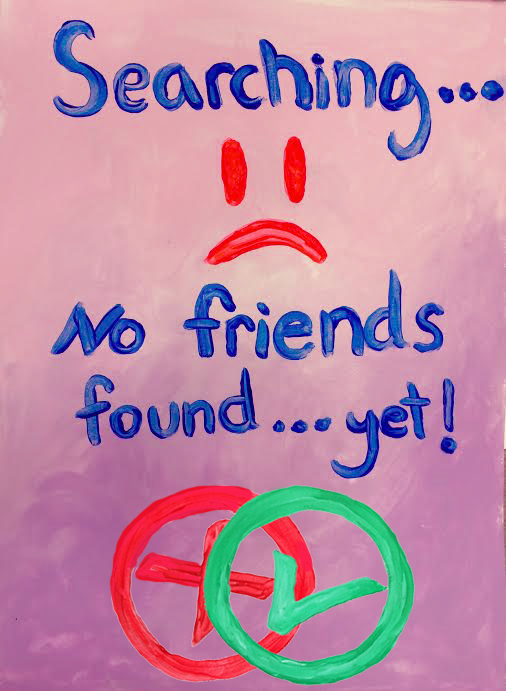 Searching...
No friends
found...yet!